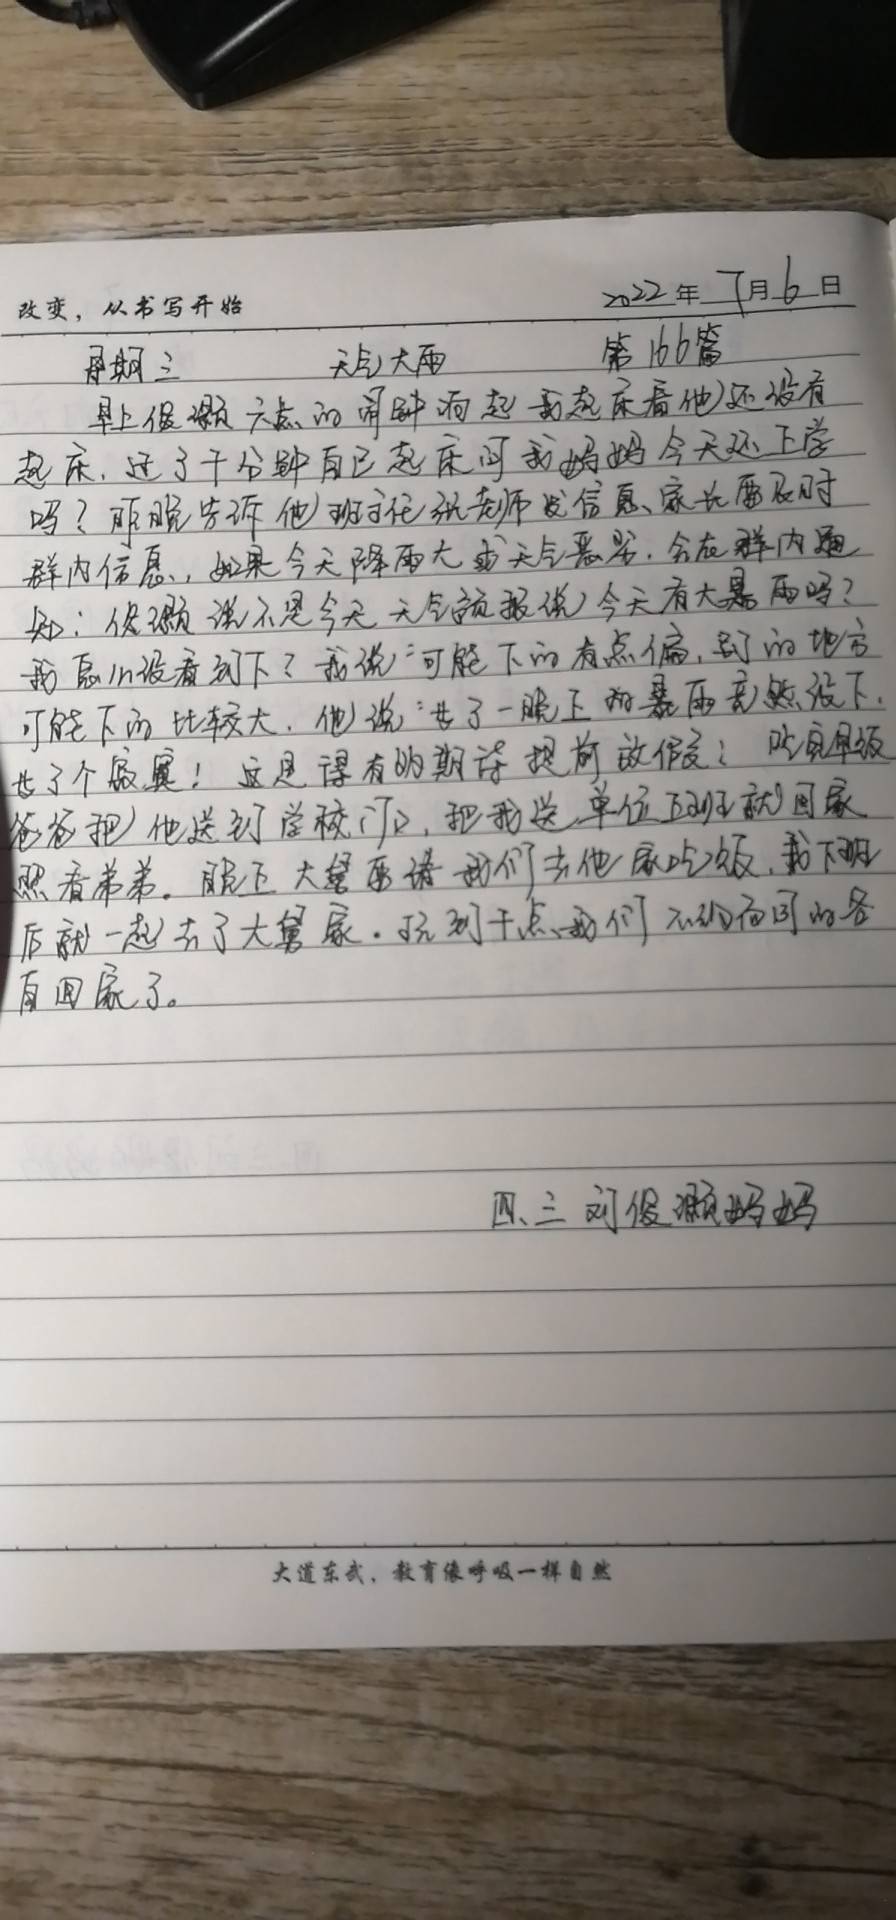 改变，从书写开始
2022年7月6日
星期三 天气大雨 第166篇
早上俊灏六点的闹钟响起我起床看他还没有
起床，过了十分钟自己起床问我妈妈今天还上学
吗？昨晚告诉他班主任张老师发信息、家长要及时
群内信息，如果今天降雨大或天气恶劣，会在群内通
知：俊灏说不是今天天气预报说今天有大暴雨吗？
我怎么没看到下？我说：可能下的有点偏，别的地方
可能下的比较大．他说：廿了一晚上的暴雨竟然没下．
廿了个寂寞！这是得有的期待提前放假？吃完早饭
爸爸把他送到学校门口，把我送单位下班就回家
照看弟弟。晚上大舅要请我们去他家吃饭，我下班
后就一起去了大舅家．玩到十点，我们不约而同的各
自回家了。
四、三 刘俊灏妈妈
大道东武，教育像呼吸一样自然